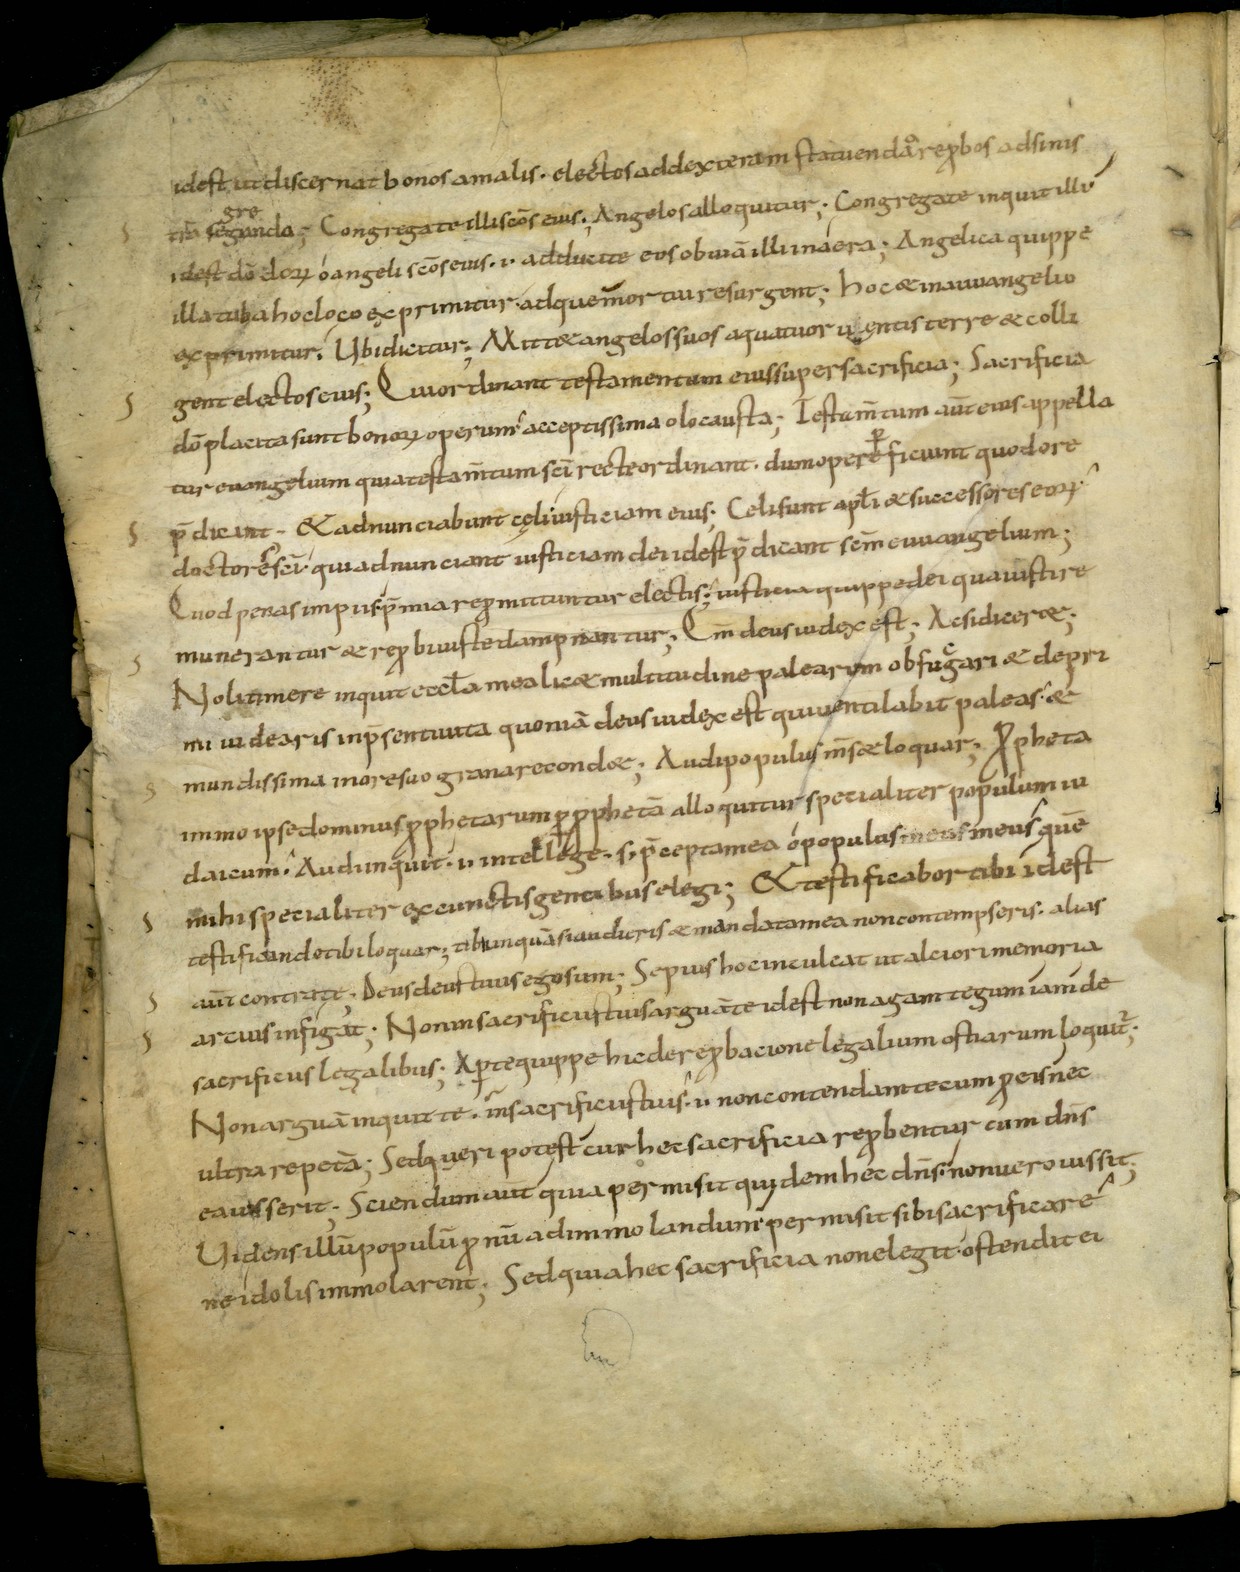 idest ut discernat bonos a malis. electos ad dexteram statuendo. reꝓbos ad sinis
trā segregando; Congregate illi scōs eius; Angelos alloquitur; Congregate inquit illi
idest dō deoꝝ ó angeli scōs eius. ·i· adducite eos obuiā illi in aera; Angelica quippe
illa tuba hoc loco exprimitur. ad quem mortui resurgent; hoc & in aeuuangelio
exprimitur. Ubi dicitur; Mitt& angelos suos a quatuor uentis terre & colli
gent electos eius; Qui ordinant testamentum eius super sacrificia; Sacrificia
dō placita sunt bonoꝝ operum acceptissima olocausta; Testam̄tum aūt eius appella
tur euangelium quia testam̄tum scī recte ordinant. dum opere ꝑficiunt quod ore
p̄dicant. & adnunciabunt cęli iusticiam eius; Celi sunt apłi & successores eoꝝ
doctores scī. qui adnunciant iusticiam dei idest p̄dicant scm̄ euuangelium;
Quod penas impiis p̄mia reꝓmittuntur electis; iusticia quippe dei qua iusti re
munerantur & reꝓbi iuste dampnantur; Qm̄ deus iudex est; Ac si dicer&;
Noli timere inquit eccła mea lic& multitudine palearum obfuscari & depri
mi uidearis in p̄senti uita quoniā deus iudex est qui uentilabit paleas. &
mundissima in oreo suo grana recond&; Audi populus m̄s & loquar; Ꝓpheta
immo ipse dominus ꝓphetarum ꝑ ꝓphetā alloquitur specialiter populum iu
daicum. Audi inquit. ·i· intellege. s. p̄cepta mea ó populus meus meus quē
mihi specialiter ex cunctis gentibus elegi; & testificabor tibi idest
testificando tibi loquar; tibi inquā si audieris & mandata mea non contempseris. alias
aūt contra te. Deus deus tuus ego sum; Sepius hoc inculcat ut alciori memoria
artius infigat; Non in sacrificiis tuis arguā te idest non agam tegum iam de
sacrificiis legalibus; Aꝑte quippe hic de reꝓbacione legalium ostiarum loquit̄;
Non arguā inquit te. in sacrificiis tuis. ·i· non contendam tecum ꝓ eis nec
ultra repetā; Sed queri potest cur hec sacrificia reꝓbentur cum dn̄s
ea iusserit; Sciendum aūt quia permisit quidem hec dn̄s. non uero iussit;
Uidens illū populū ꝓnū ad immolandum permisit sibi sacrificare
ne idolis immolarent; Sed quia hec sacrificia non elegit ostendit ei